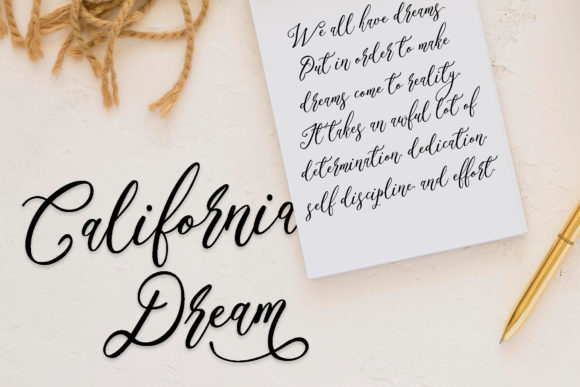 We all have dreams.
But in order to make
dreams come to reality.
It takes an awful lot of
determination, dedication,
self discipline, and effort.
California
Dream